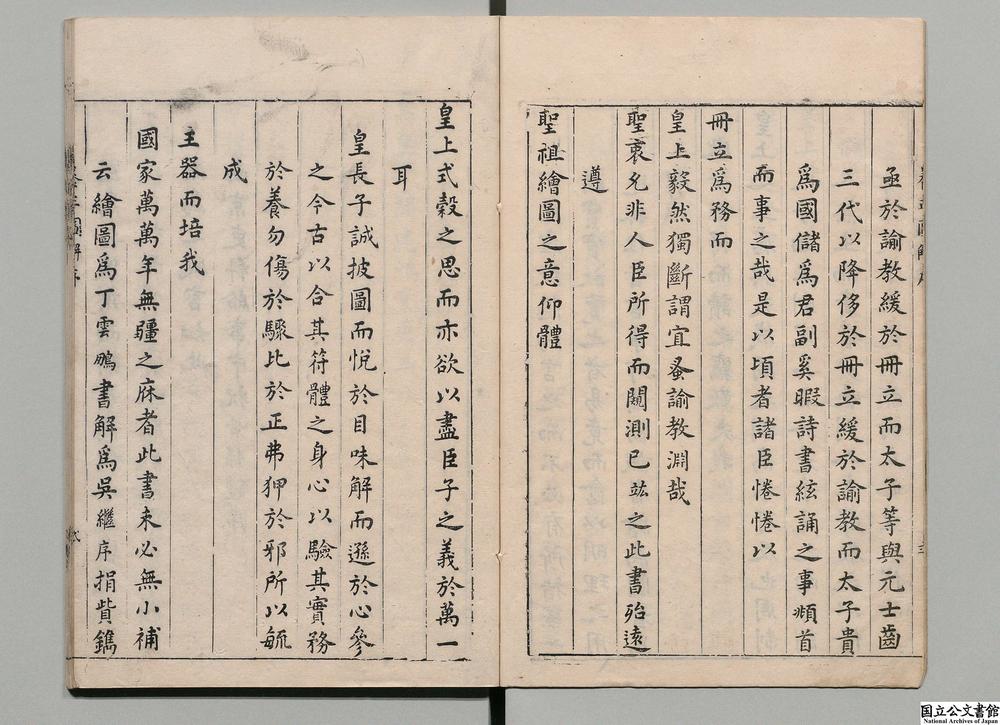 亟於諭教緩於冊立而太子等與元士齒
三代以降侈於冊立緩於諭教而太子貴
爲國儲爲君副奚暇詩書絃誦之事頫首
而事之哉是以頃者諸臣惓惓以
冊立爲務而
皇上毅然獨斷謂宜蚤諭教淵哉
聖衷允非人臣所得而闚測已竑之此書殆遠
遵
聖祖繪圖之意仰體
皇上式穀之思而亦欲以盡臣子之義於萬一
耳
皇長子誠披圖而悅於目味解而遜於心參
之今古以合其符體之身心以驗其實務
於養勿傷於驟比於正弗狎於邪所以毓
成
主器而培我
國家萬萬年無疆之庥者此書未必無小補
云繪圖爲丁雲鵬書解爲吳繼序捐貲鐫
国立公文書館
National Archives of Japan